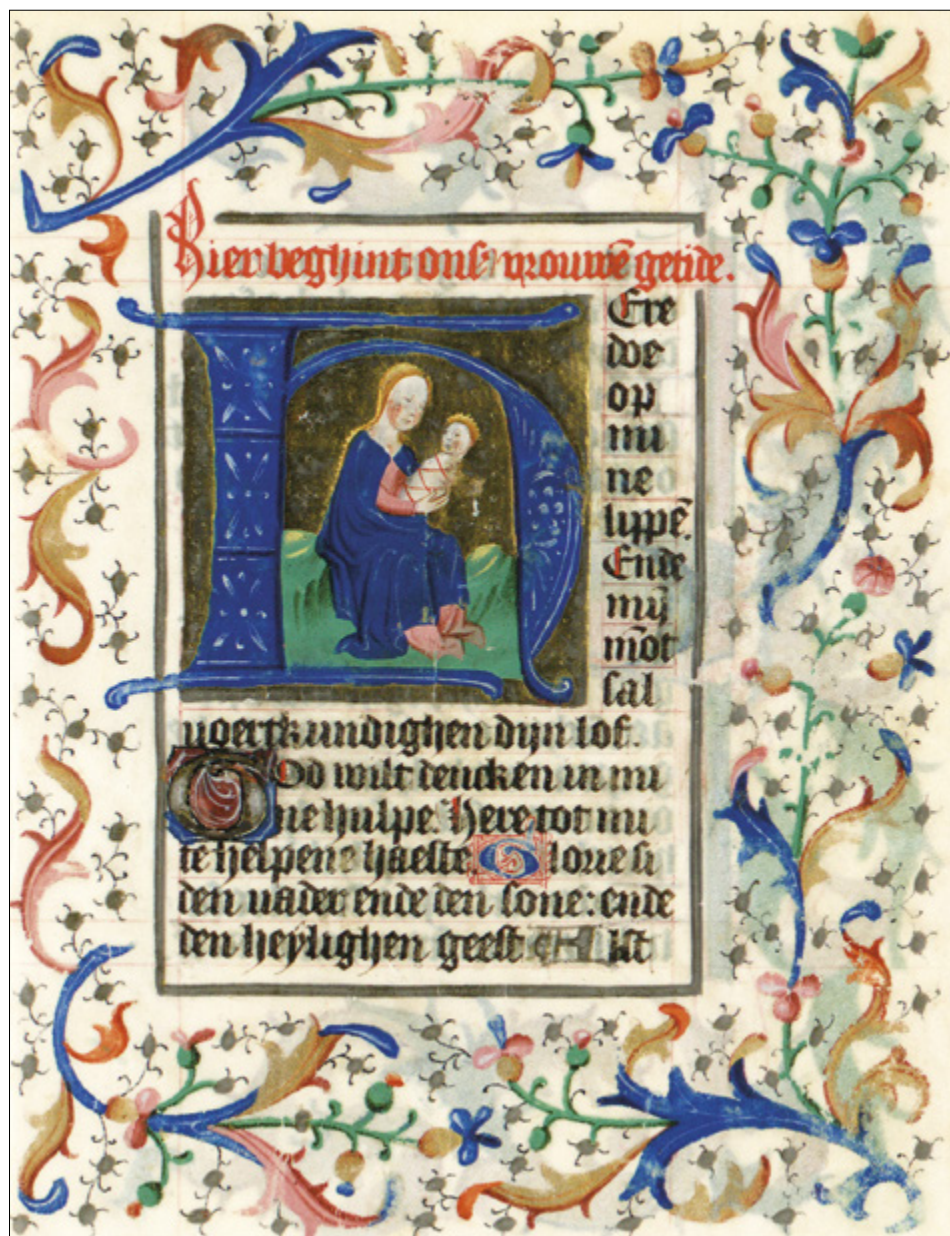 Hier beghint ons vrouwē getide.
HEre
doe
op
mi
ne
lippē.
Ende
mȳ
mōt
sal
voertkundighen dijn lof.
God wilt dencken in mi
ne hulpe. Here tot mi
te helpene haeste. Glorie si
den vader ende den sone: ende
den heylighen geest Alst